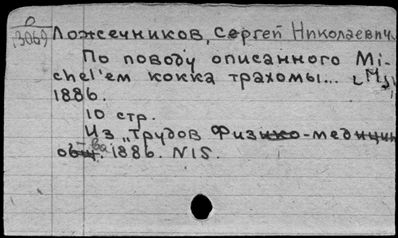 0
3069
Ложсечников, Сергей Николаевич.
По поводу описанного Mi-
chel'ем кокка трахомы...
1886.
10 стр.
Из „Трудов Физико-медицин
общ-ва. 1886. N15.